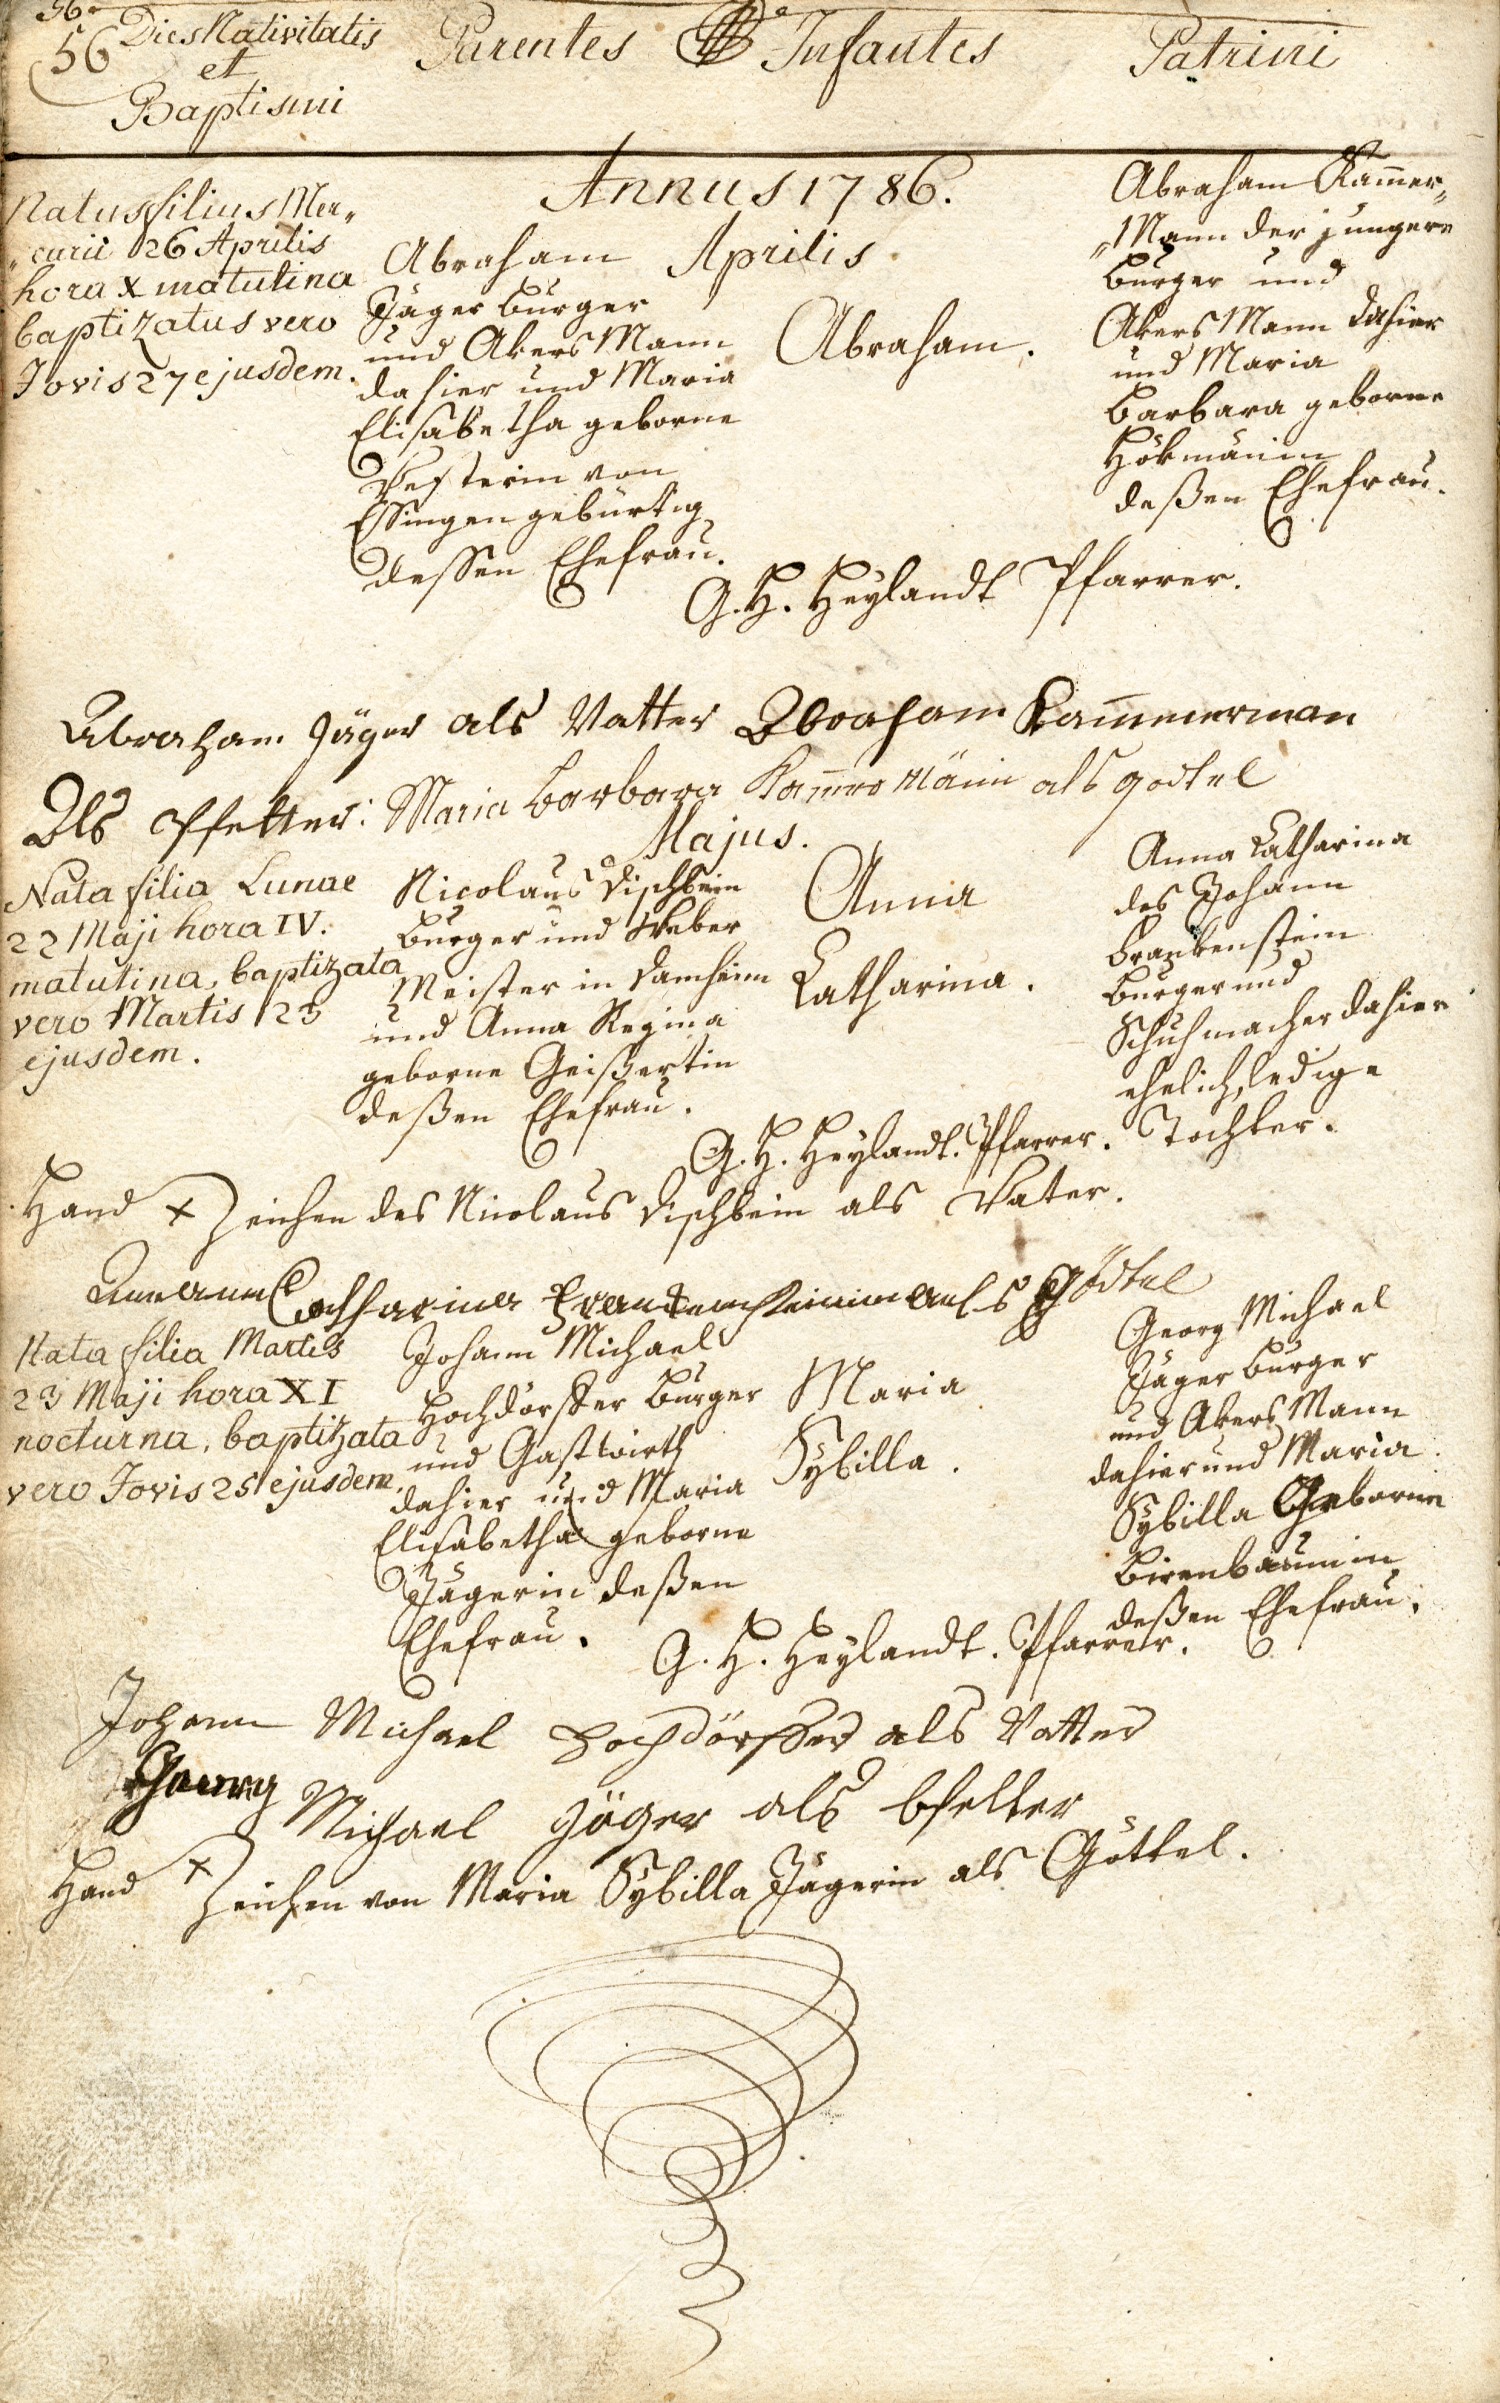 56
Dies Nativitatis
et
Baptismi
Parentes
Infantes
Patrini
Annus 1786.
Aprilis
Natus filius Mer„
„curii 26 Aprilis
hora X matutina
baptizatus vero
Jovis 27 ejusdem.
Abraham
Jäger burger
und Akers Mann
dahier und Maria
Elisabetha geborne
von
Essingen gebürtig
dessen Ehefrau.
Abraham.
Abraham Kam̅er„
„Mann der jungere
burger und
Akers Mann dahier
und Maria
barbara geborne
Hökmänin
deßen Ehefrau.
G. H. Heylandt Pfarrer.
Abraham Jäger als Vatter Abraham Kam̅merman
Als Pfetter: Maria barbara Kam̅ermänin als godtel
Majus.
Nata filia Lunae
22 Maji hora IV.
matutina, baptizata
vero Martis 23
ejusdem.
Nicolaus Dischbein
burger und Weber
Meister in Damheim
und Anna Regina
geborne Geißertin
deßen Ehefrau.
Anna
Catharina.
Anna Catharina
des Johann
Frankenstein
burger und
Schuhmacher dahier
ehelich ledige
Tochter.
G. H. Heylandt. Pfarrer.
Hand + Zeichen des Nicolaus Dischbein als Vater.
Catharina Franckensteinin als Gödtel
Nata filia Martis
23 Maji hora XI
nocturna, baptizata
vero Jovis 25 ejusdem.
Johann Michael
Hochdörffer burger
und Gastwirth
dahier und Maria
Elisabetha geborne
Jägerin deßen
Ehefrau.
Maria
Sybilla.
Georg Michael
Jäger burger
und Akers Mann
dahier und Maria
Sybilla Geborne
birenbaumin
deßen Ehefrau.
G. H. Heylandt. Pfarrer.
Johann Michael Hochdörffer als Vatter
Georg Michael Jäger als bfetter
Hand + Zeichen von Maria Sybilla Jägerin als Göttel.